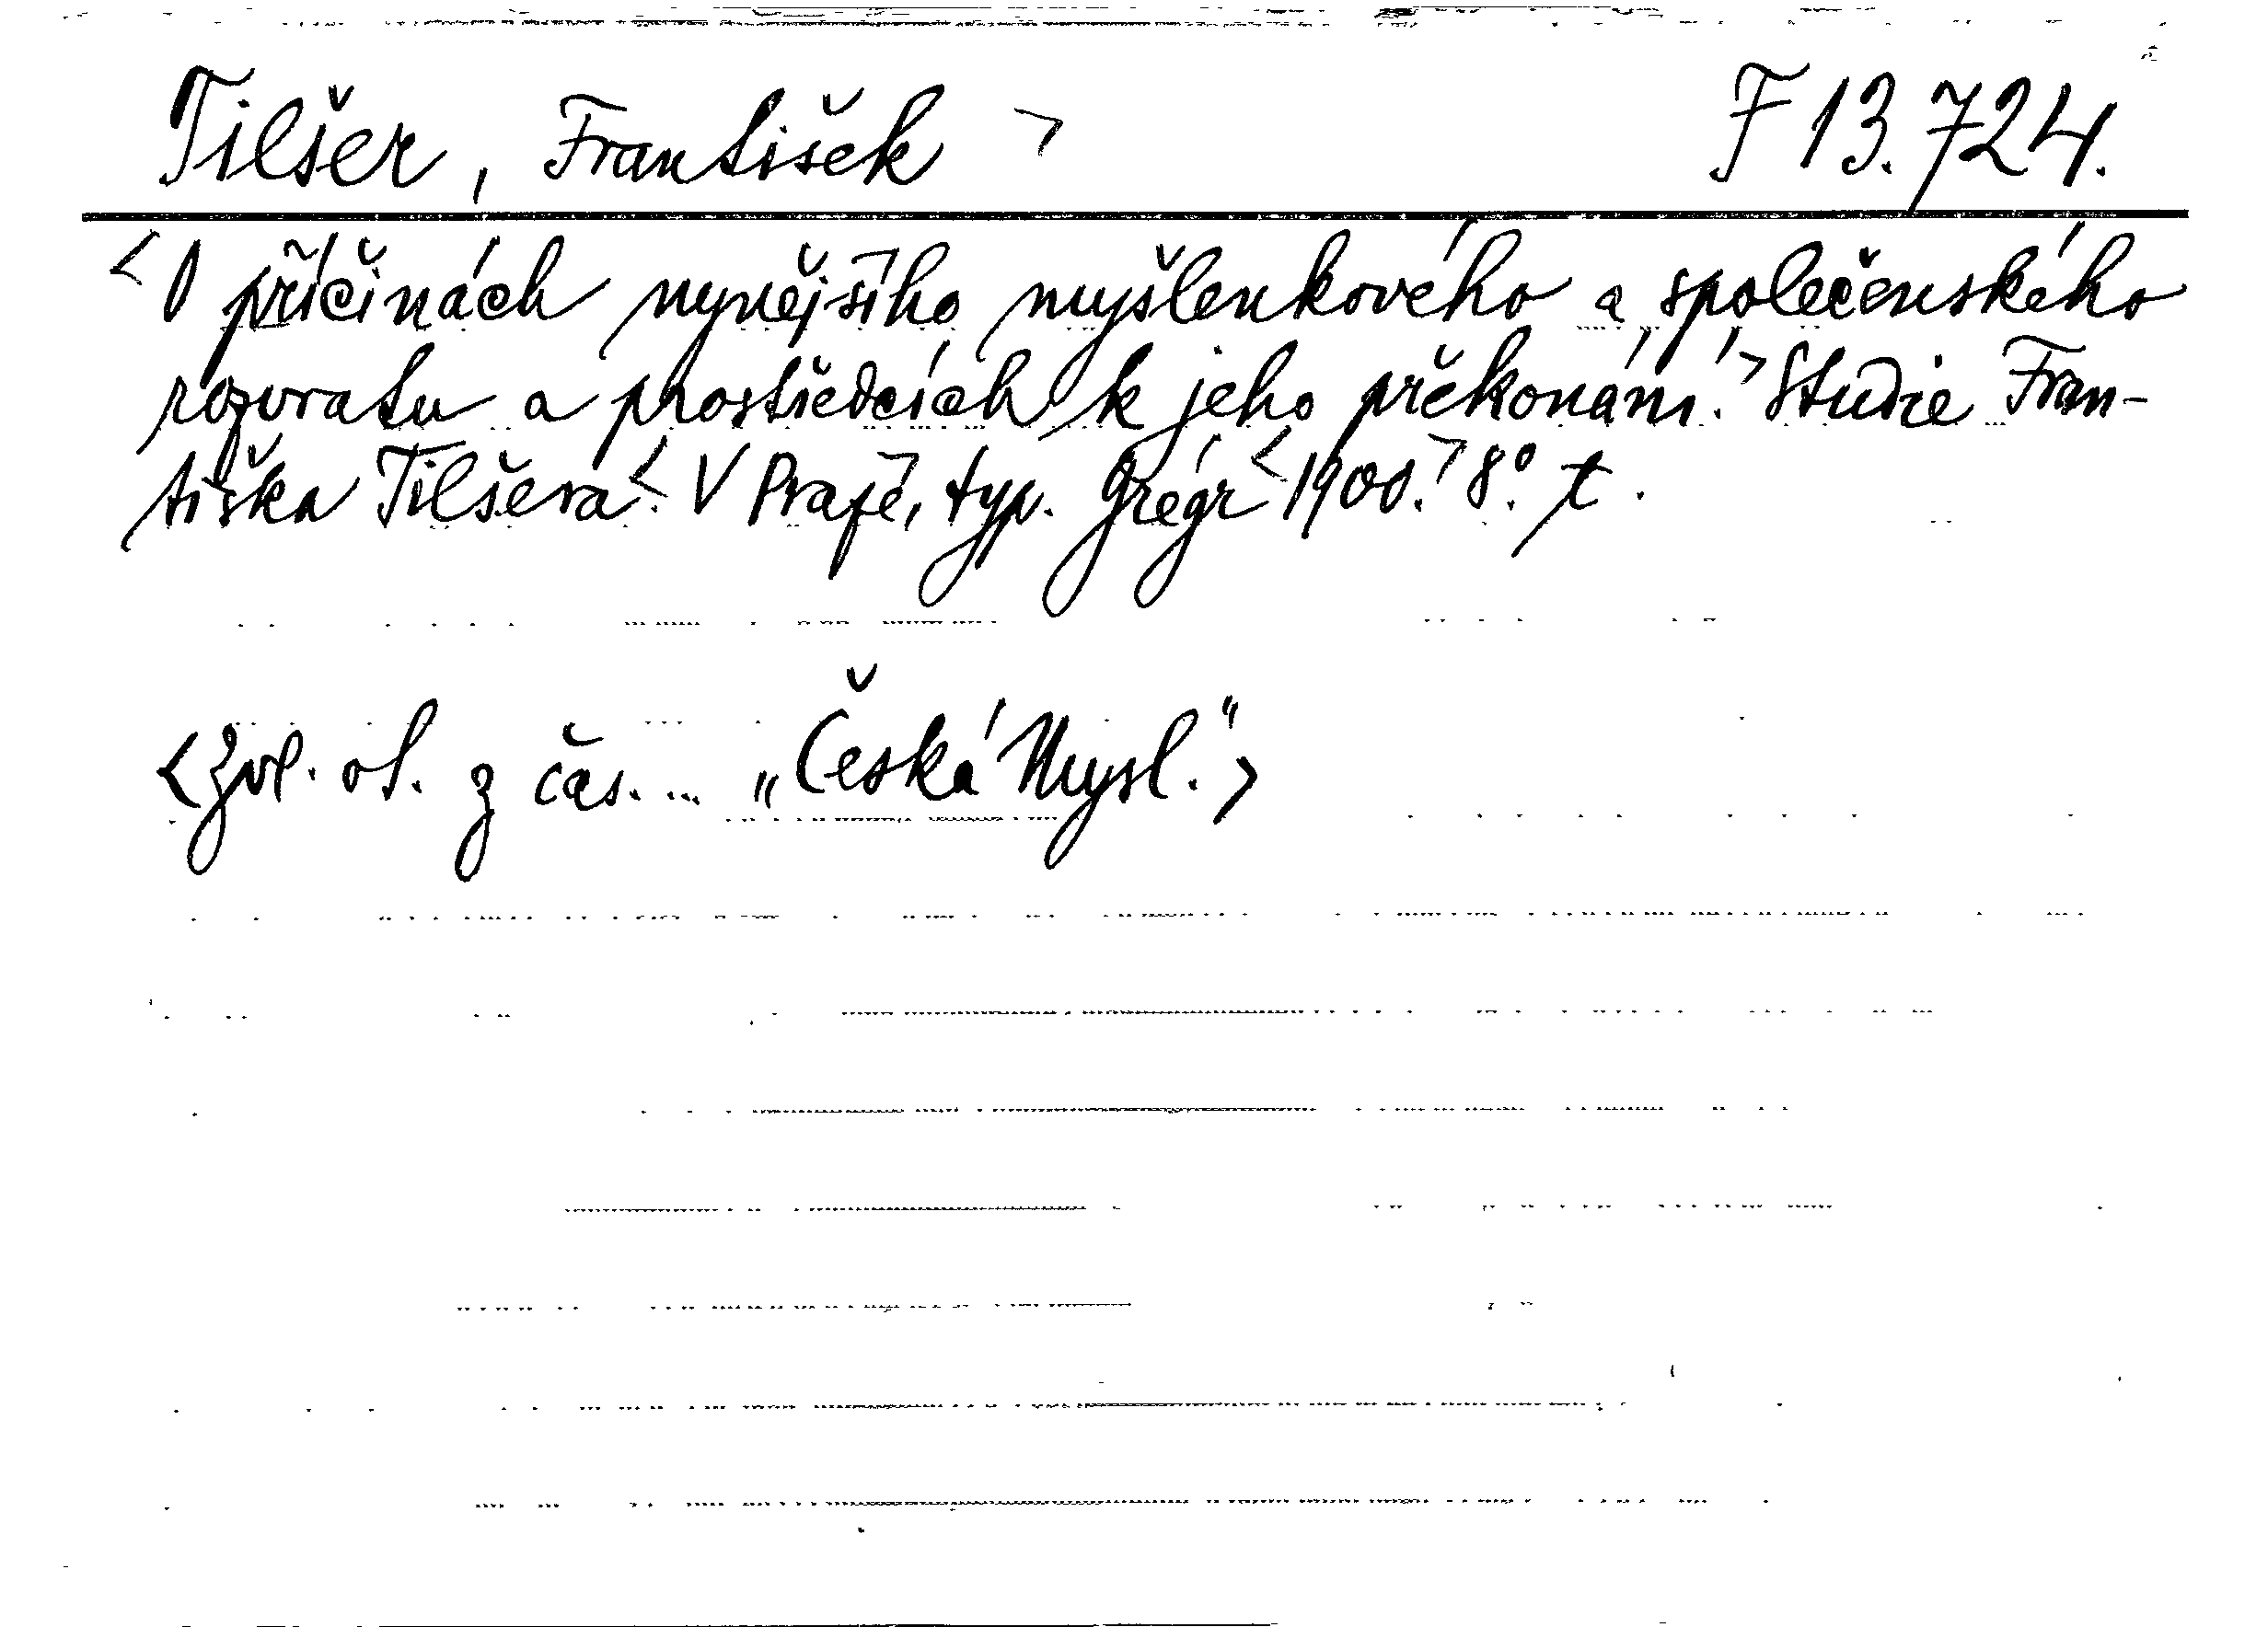 Tilšer, František > F 13.724.
<O příčinách nynějšího myšlenkového a společenského
rozvratu a prostředcích k jeho překonání.> Studie Fran-
tiška Tilšera <. V Praze, typ. Grégr < 1900.> 8°. t.
<Zvl. ot. z čas. ... „Česká Mysl.">